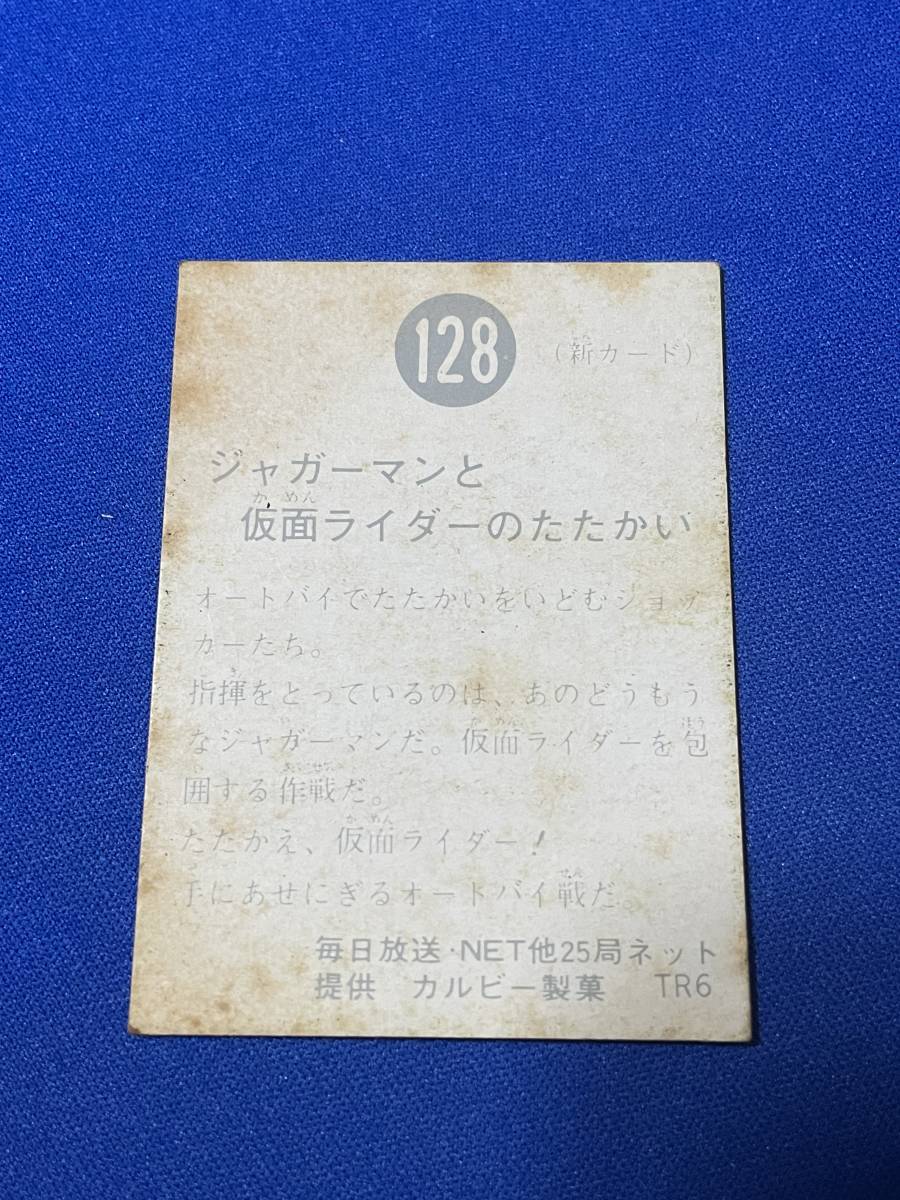 128
(新カード)
ジャガーマンと
仮面ライダーのたたかい
オートバイでたたかいをいどむショッ
カーたち。
指揮をとっているのは、あのどうもう
なジャガーマンだ。仮面ライダーを包
囲する作戦だ。
たたかえ、仮面ライダー!
手にあせにぎるオートバイ戦だ。
毎日放送·NET他25局ネット
提供 カルビー製菓 TR6